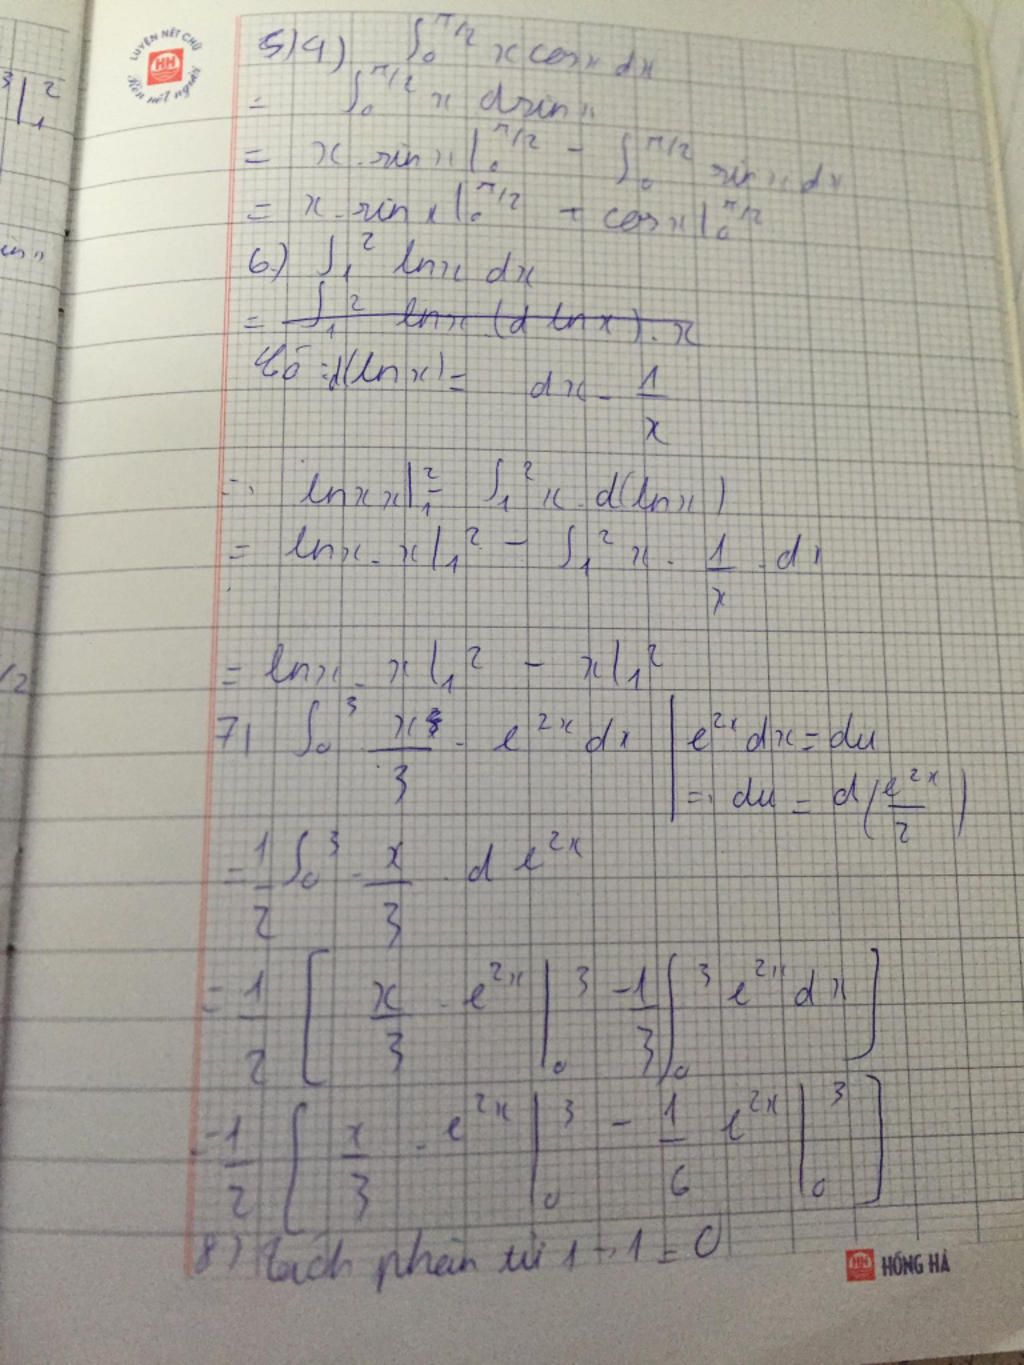 3|₁²
LUYỆN NẾT CHỮ
HH
Rèn nết người
5)4) ∫₀^π/2 x cosx dx
= ∫₀^π/2 x dsin x
= x . sin x|₀^π/2 - ∫₀^π/2 sin x dx
= x . sin x|₀^π/2 + cos x|₀^π/2
6.) ∫₁² lnx dx
= ∫₁² lnx (d lnx) . x
Có : d(lnx) = dx . 1/x
=> lnx x|₁² - ∫₁² x . d(lnx)
= lnx . x|₁² - ∫₁² x . 1/x . dx
= lnx . x|₁² - x|₁²
7) ∫₀³ x/3 . e^2x dx | e^2x dx = du
=> du = d(e^2x/2)
= 1/2 ∫₀³ x/3 . d e^2x
= 1/2 [ x/3 . e^2x |₀³ - 1/3 ∫₀³ e^2x dx ]
= 1/2 [ x/3 . e^2x |₀³ - 1/6 e^2x |₀³ ]
8) Tích phân từ 1 -> 1 = 0
HH HỒNG HÀ